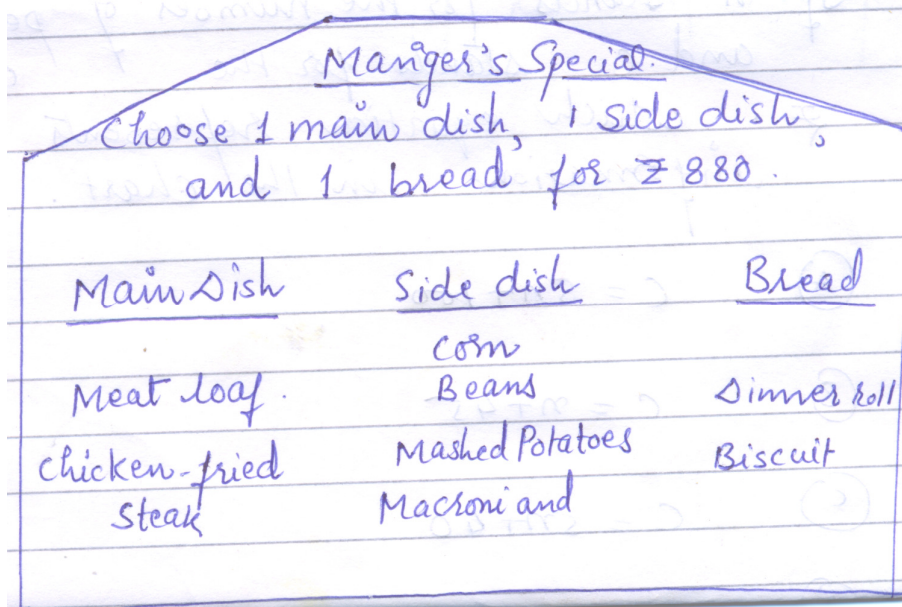 Maniger's Special.
Choose 1 main dish, 1 side dish,
and 1 bread, for ₹ 880.
Main Dish Side dish Bread
Corn
Meat loaf. Beans Dinner roll
Chicken-fried Mashed Potatoes Biscuit
Steak Macroni and